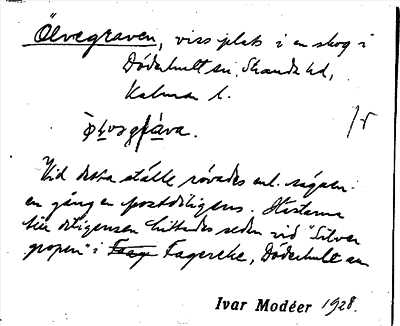 Ölvegraven, viss plats i en skog i
Döderhult sn, Stranda hd,
Kalmar l.
Vid detta ställe rövades enl. sägnen
en gång en postdiligens. Hästarna
till diligensen hittades sedan vid "Silver
gropen" i Fagereke, Döderhult sn
Ivar Modéer 1928.